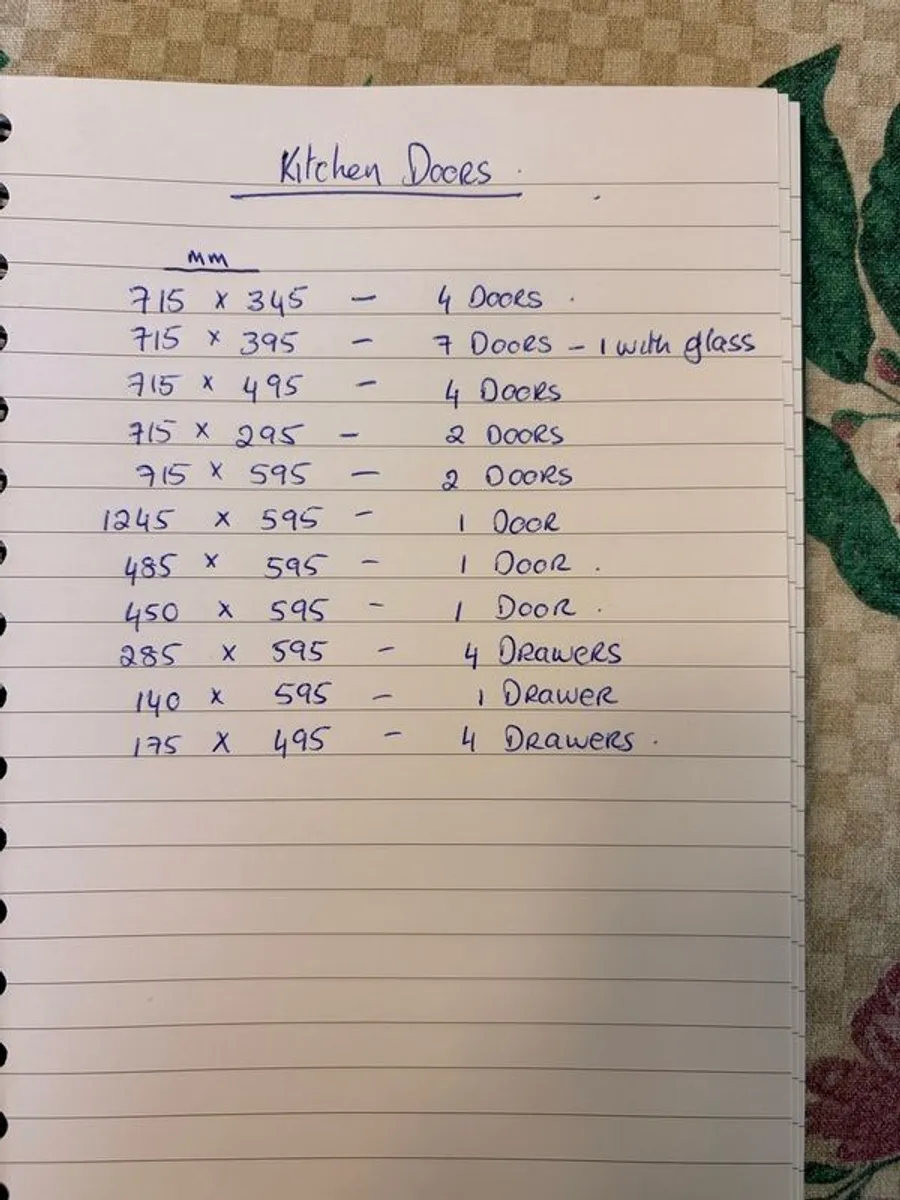 Kitchen Doors
mm
715 x 345 - 4 Doors
715 x 395 - 7 Doors - 1 with glass
715 x 495 - 4 Doors
715 x 295 - 2 Doors
715 x 595 - 2 Doors
1245 x 595 - 1 Door
485 x 595 - 1 Door
450 x 595 - 1 Door
285 x 595 - 4 Drawers
140 x 595 - 1 Drawer
175 x 495 - 4 Drawers